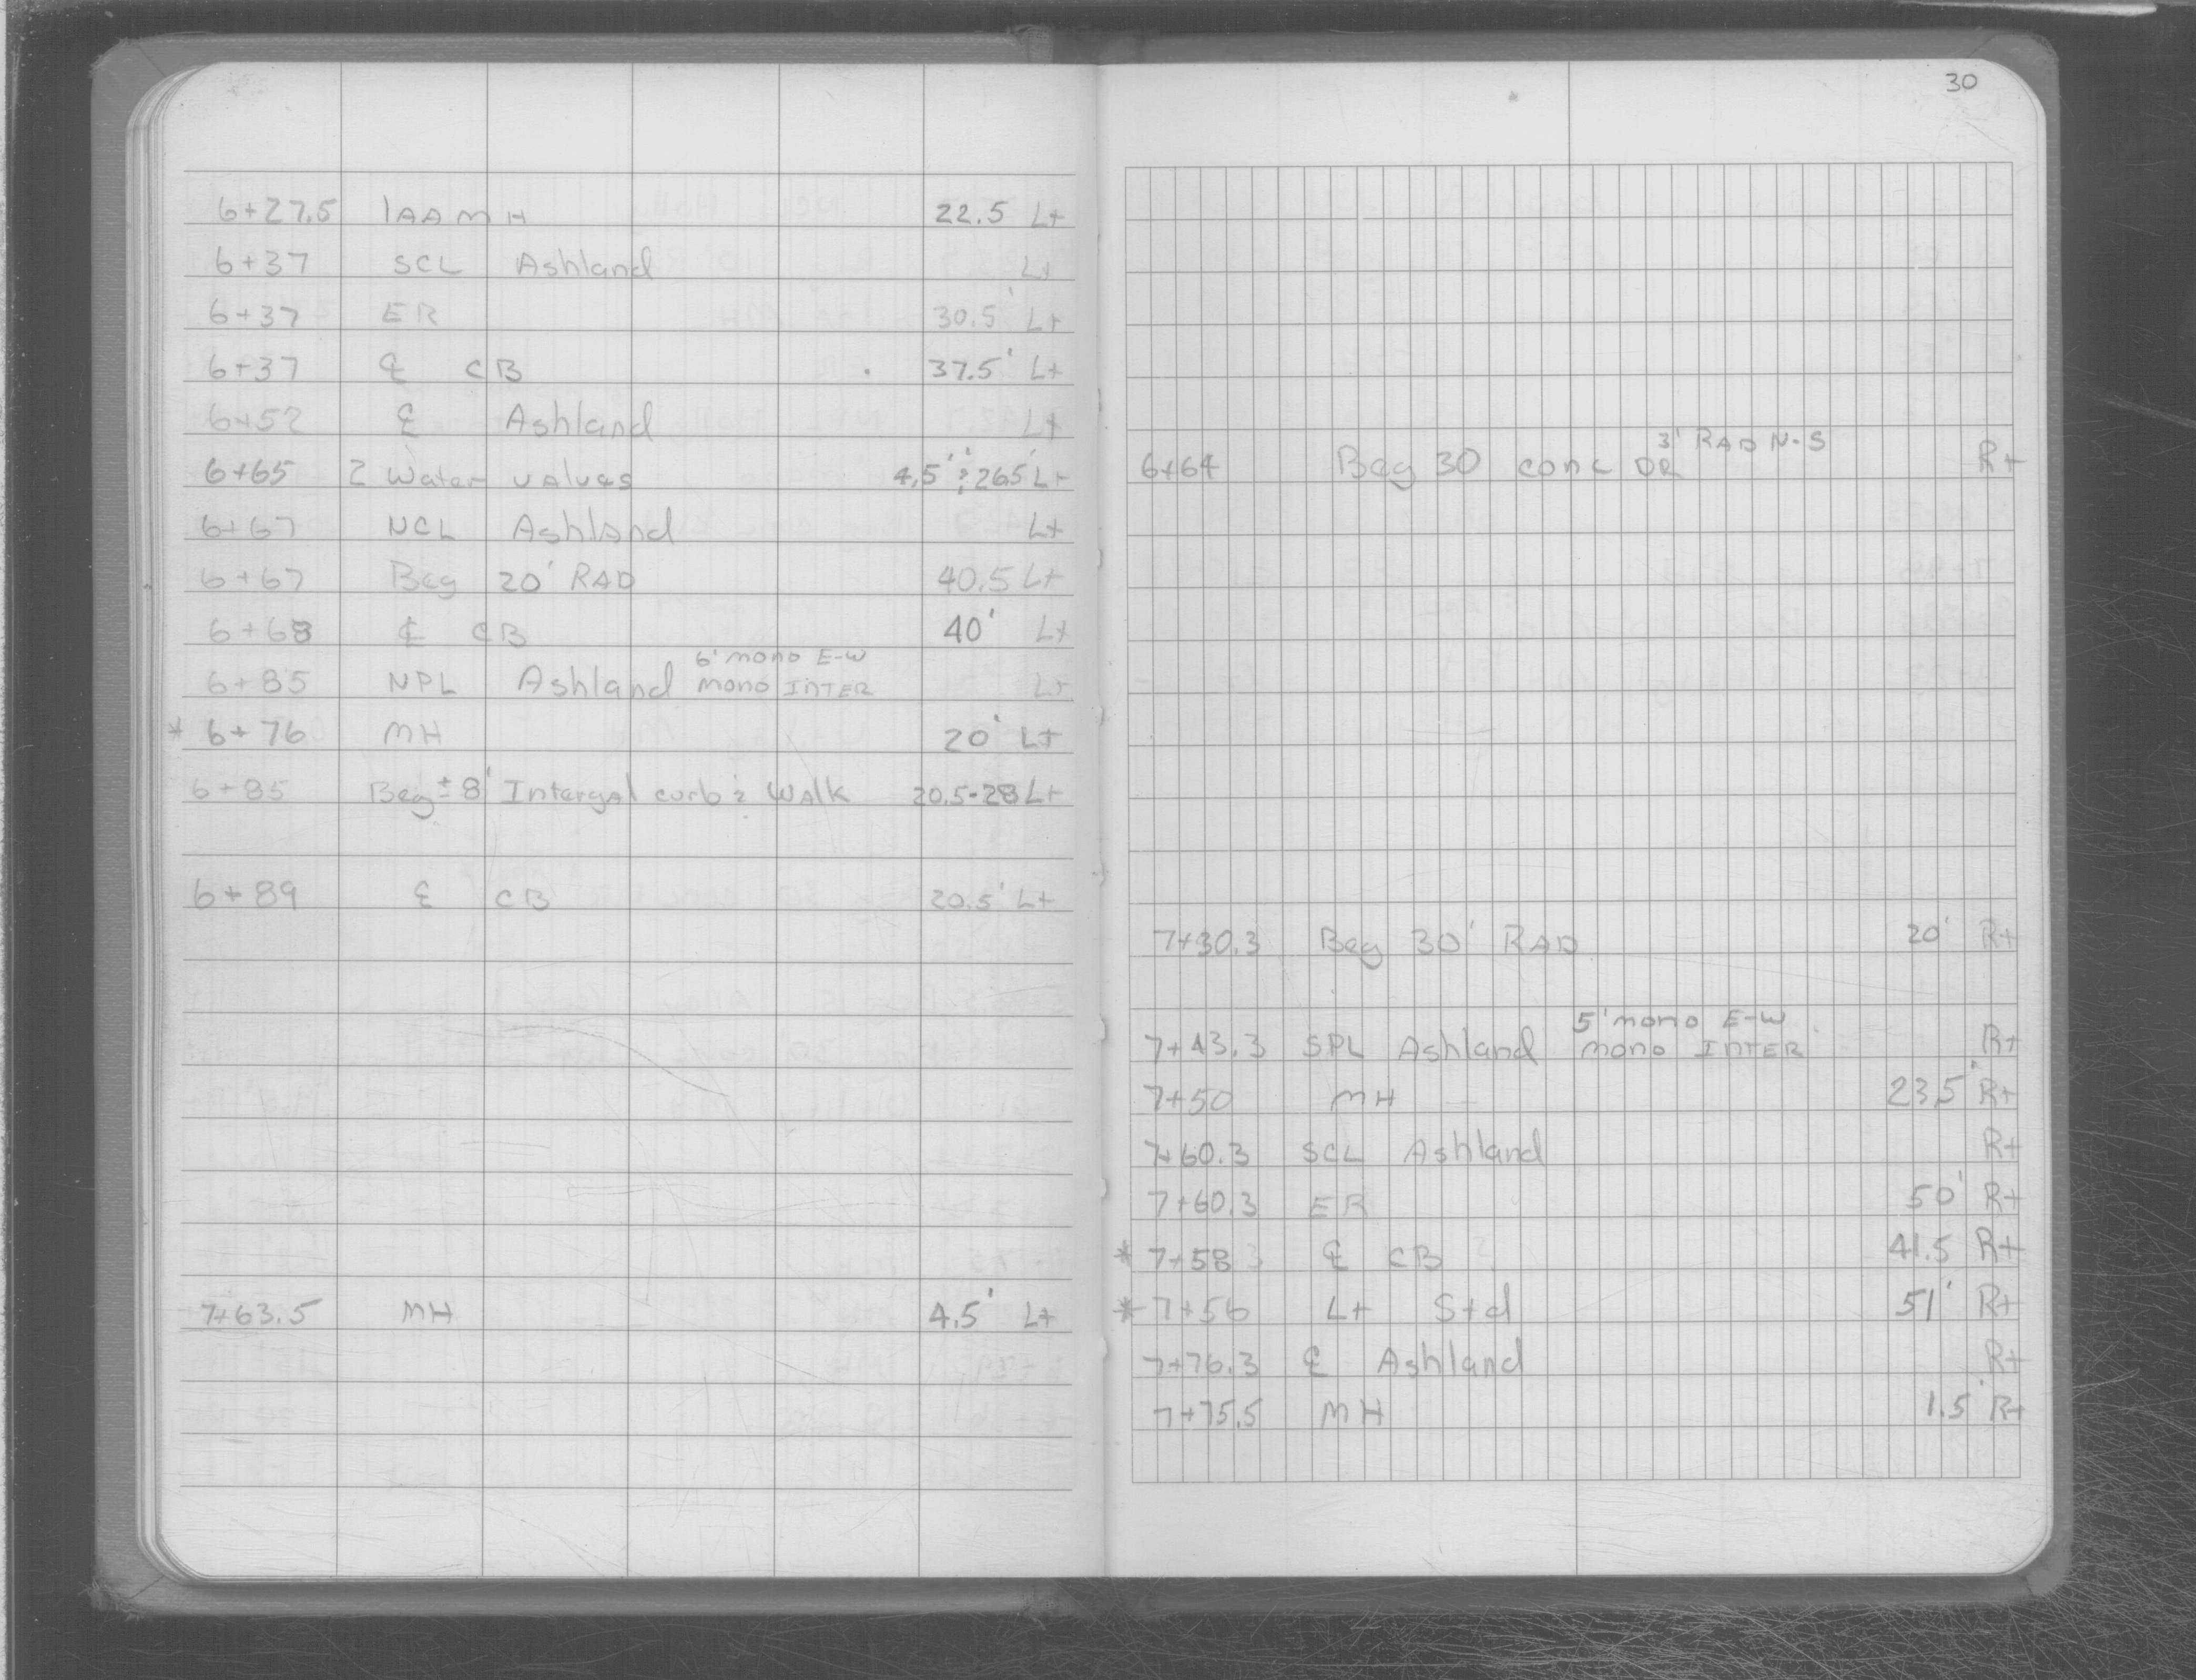 6+27.5 1AA MH 22.5 Lt
6+37 SCL Ashland Lt
6+37 ER 30.5' Lt
6+37 ℄ CB 37.5' Lt
6+52 ℄ Ashland Lt
6+65 2 Water valves 4.5' & 26.5' Lt
6+67 NCL Ashland Lt
6+67 Beg 20' RAD 40.5 Lt
6+68 ℄ CB 40' Lt
6' mono E-W
6+85 NPL Ashland mono INTER Lt
* 6+76 MH 20' Lt
6+85 Beg ± 8' Intergal curb & Walk 20.5-28 Lt
6+89 ℄ CB 20.5' Lt
7+63.5 MH 4.5' Lt
30
3' RAD N-S
6+64 Beg 30 conc DR Rt
7+30.3 Beg 30' RAD 20' Rt
5' mono E-W
7+43.3 SPL Ashland mono INTER Rt
7+50 MH 23.5' Rt
7+60.3 SCL Ashland Rt
7+60.3 ER 50' Rt
* 7+58 ℄ CB 41.5 Rt
* 7+56 Lt Std 51' Rt
7+76.3 ℄ Ashland Rt
7+75.5 MH 1.5' Rt